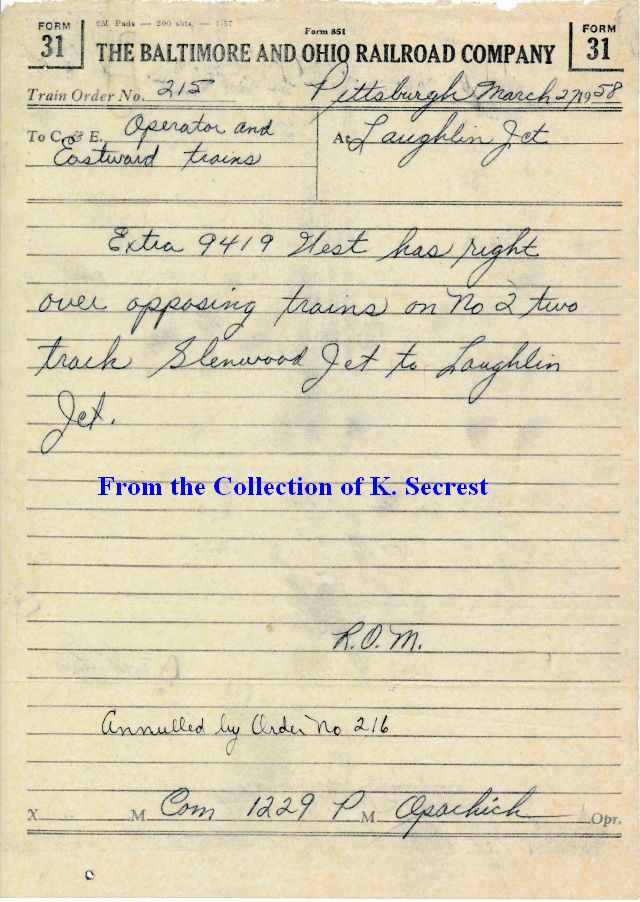 FORM 31
6M Pads — 200 shts. — 1-57
Form 851
FORM 31
THE BALTIMORE AND OHIO RAILROAD COMPANY
Train Order No. 215 Pittsburgh March 27 1958
To C. & E. Operator and
Eastward trains
At Laughlin Jct
Extra 9419 West has right
over opposing trains on No 2 two
track Glenwood Jct to Laughlin
Jct.
From the Collection of K. Secrest
R.O.M.
Annulled by Order No 216
X M Com 1229 P M Opachick Opr.